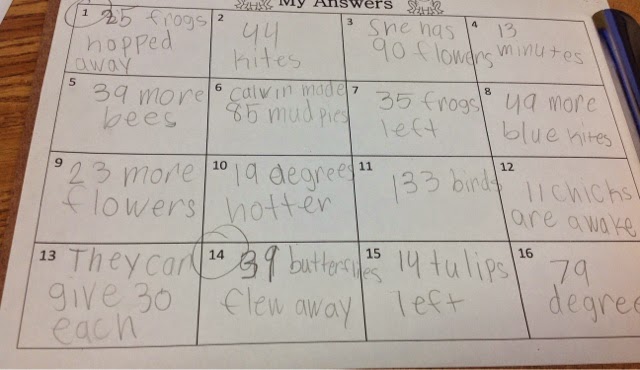 My Answers
1 25 frogs
hopped
away
2
44
kites
3 She has
90 flowers
4 13
minutes
5 39 more
bees
6 Calvin made
85 mud pies
7 35 frogs
left
8 49 more
blue kites
9 23 more
flowers
10 19 degrees
hotter
11
133 birds
12
11 chicks
are awake
13 They can
give 30
each
14 39 butterflies
flew away
15 14 tulips
left
16
79
degree